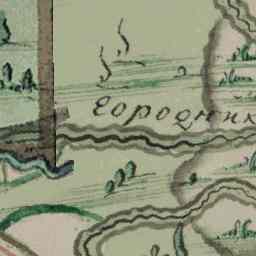 Городник